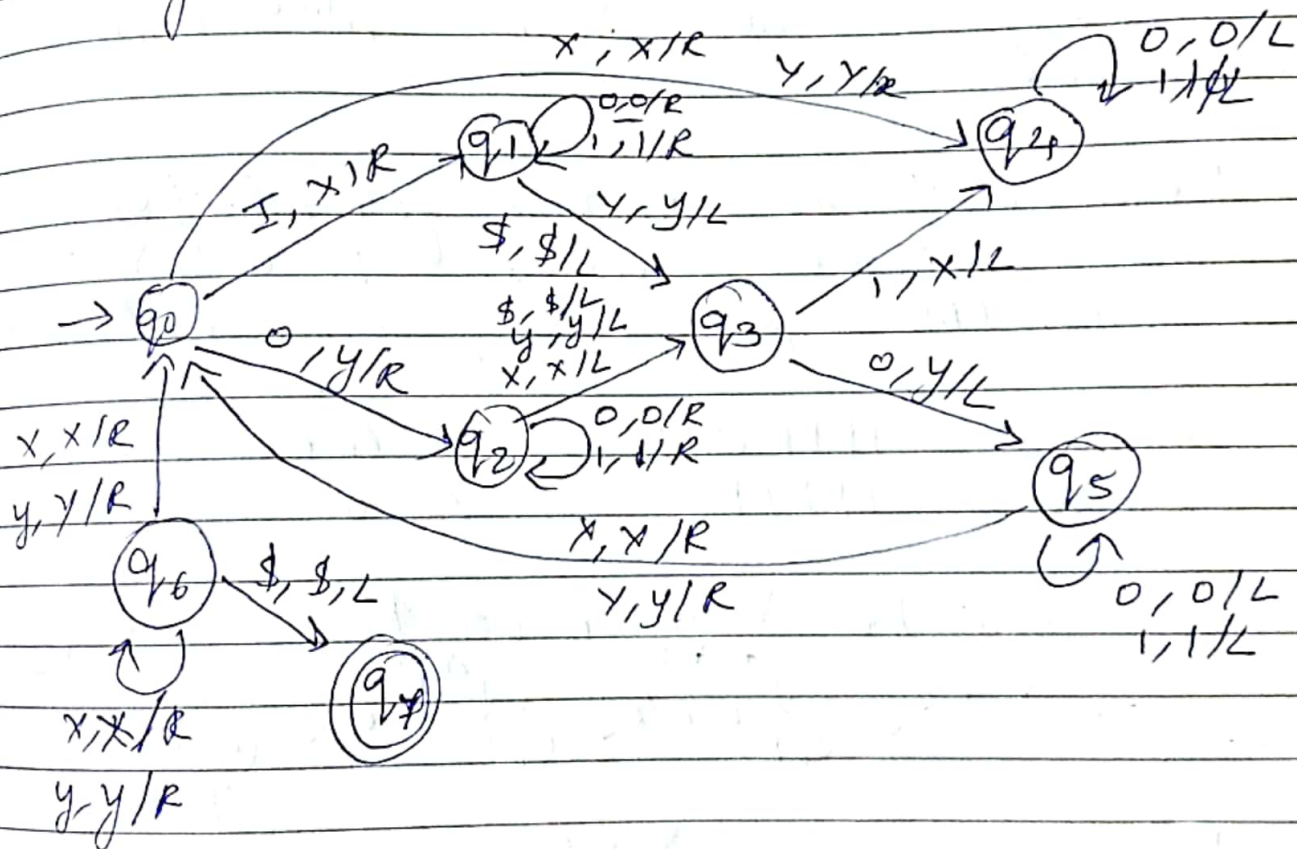 x, x/R
Y, Y/R
0, 0/L
q1
0,0/R
1, 1/R
q4
I, x/R
Y, y/L
$, $/L
1, x/L
q0
$, $/L
y, y/L
x, x/L
q3
0, y/R
0, y/L
x, x/R
y, Y/R
q2
0, 0/R
1, 1/R
q5
x, x/R
Y, y/R
0, 0/L
1, 1/L
q6
$, $, L
q7
x, x/R
y, y/R